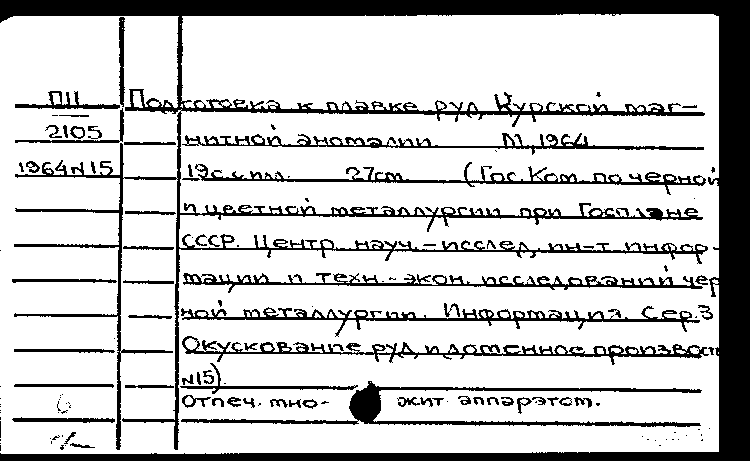 П11 Подготовка к плавке руд Курской маг-
2105 нитной аномалии. М., 1964.
1964 N15 19с. с илл. 27см. (Гос. Ком. по черной
и цветной металлургии при Госплане
СССР. Центр. науч.-исслед. ин-т инфор-
мации и техн.-экон. исследований чер
ной металлургии. Информация. Сер.3
Окускование руд и доменное произвост
N15).
6 Отпеч. мно- жит аппаратом.